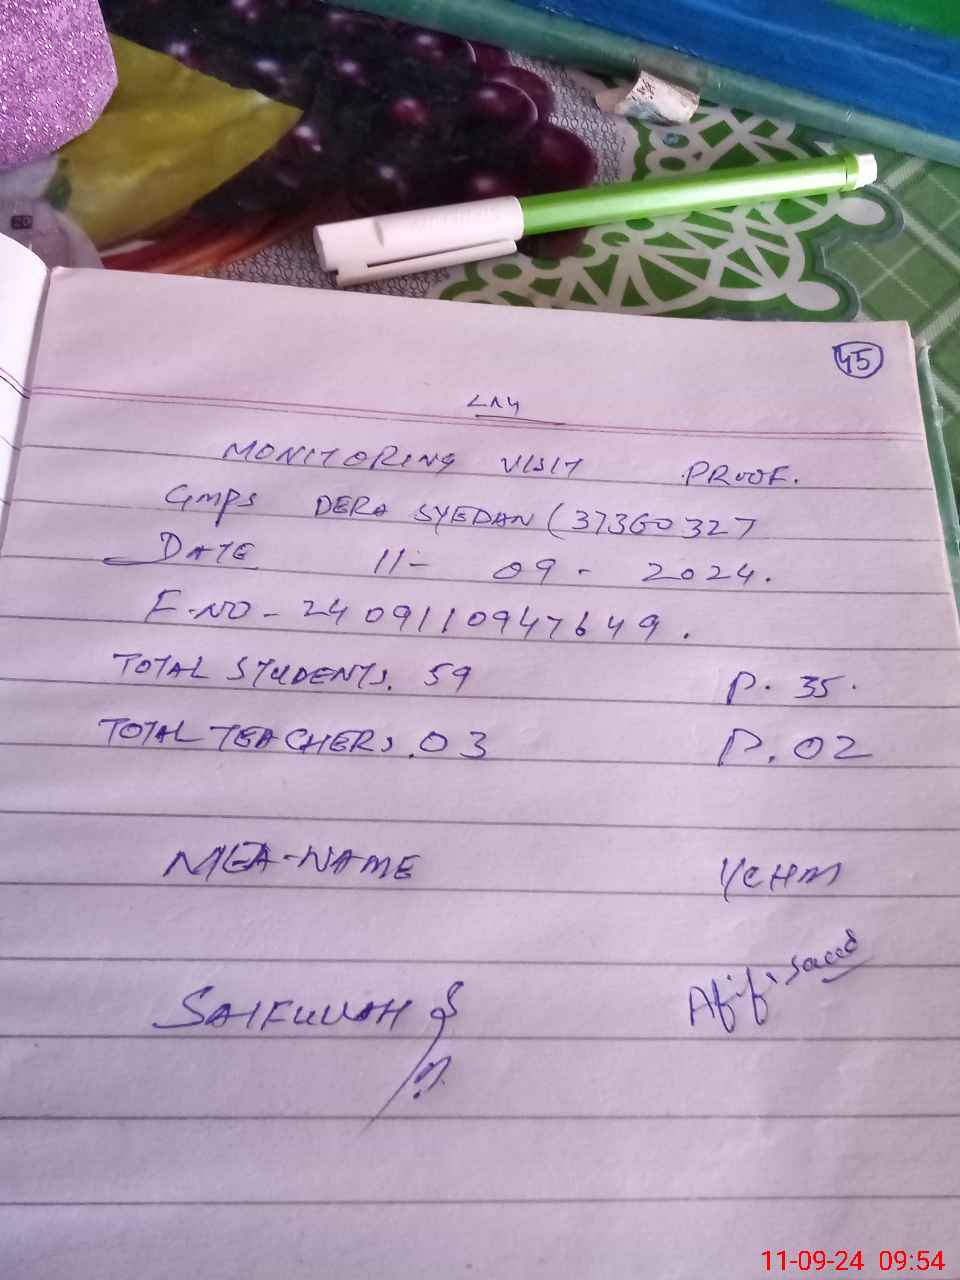 45
LND
MONITORING VISIT PROOF.
GMPS DERA SYEDAN (37360327
DATE 11- 09- 2024.
F.NO - 2409110947649.
TOTAL STUDENTS. 59 P. 35.
TOTAL TEACHERS. 03 P. 02
MEA-NAME I/C HM
SAIFULLAH Afifi Saeed
11-09-24 09:54